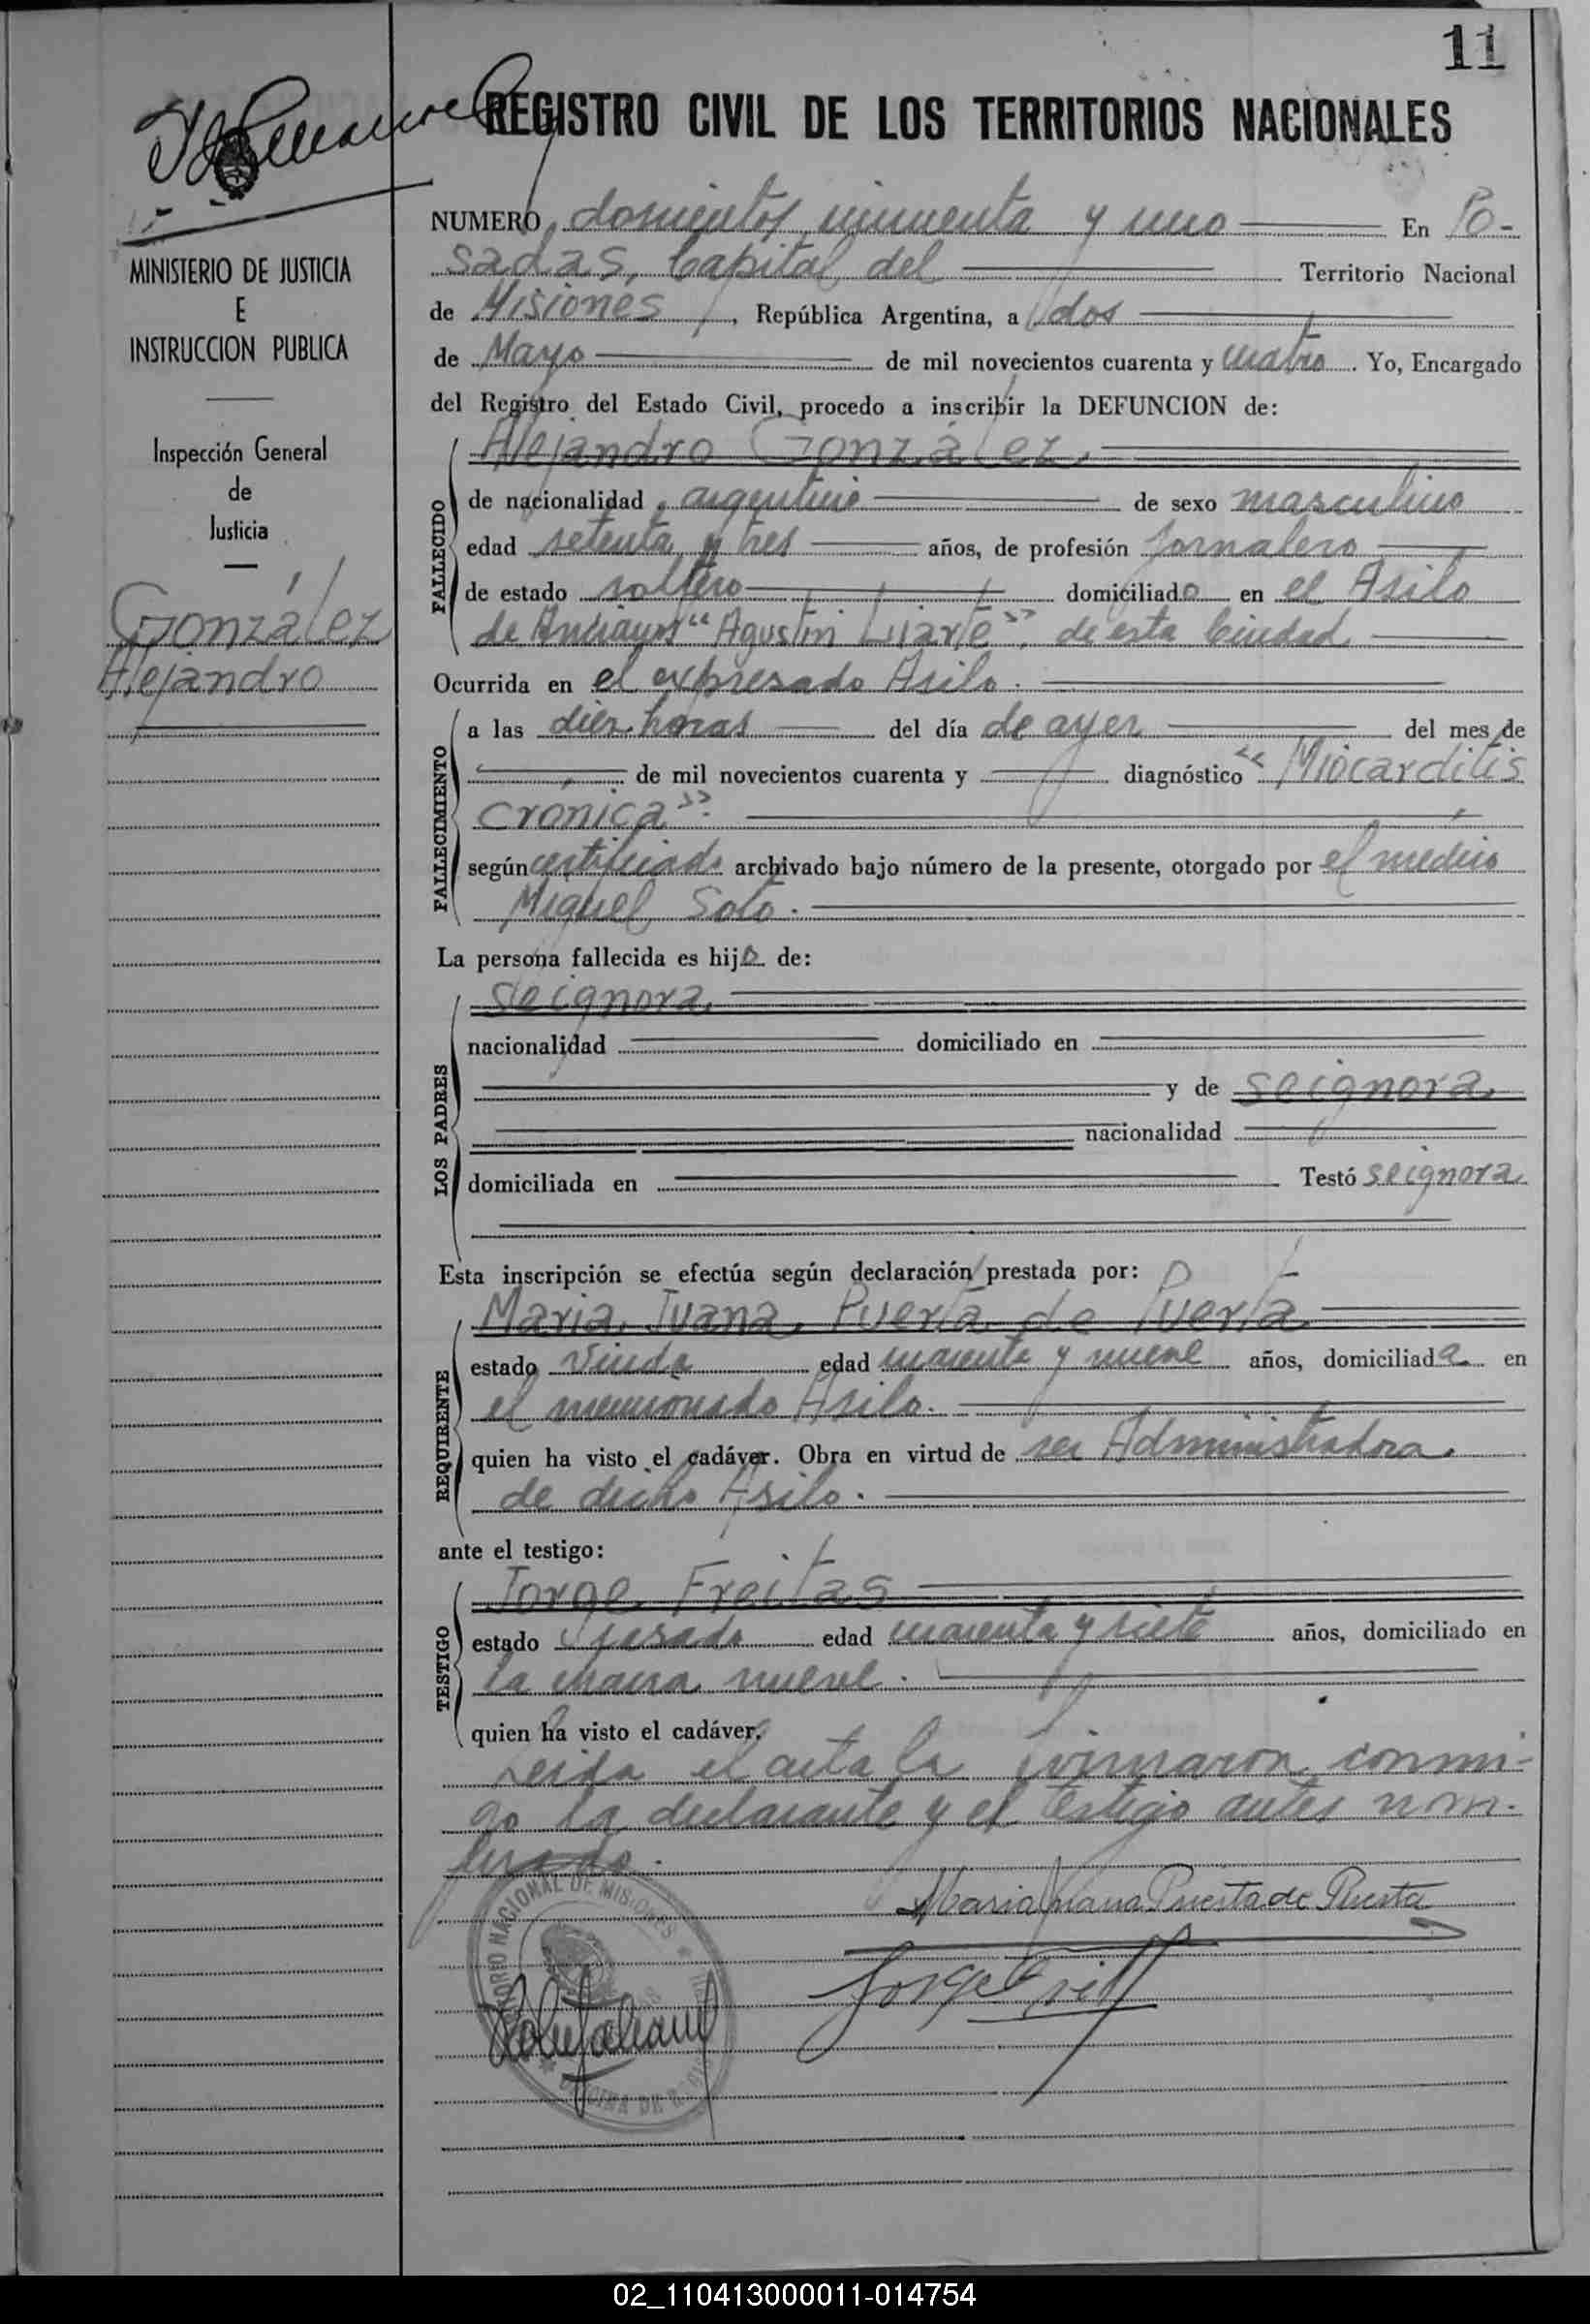 11
REGISTRO CIVIL DE LOS TERRITORIOS NACIONALES
MINISTERIO DE JUSTICIA
E
INSTRUCCION PUBLICA
Inspección General
de
Justicia
González
Alejandro
NUMERO doscientos cincuenta y uno En Po-
sadas, Capital del Territorio Nacional
de Misiones, República Argentina, a dos
de Mayo de mil novecientos cuarenta y cuatro. Yo, Encargado
del Registro del Estado Civil, procedo a inscribir la DEFUNCION de:
FALLECIDO
Alejandro González
de nacionalidad argentino de sexo masculino
edad setenta y tres años, de profesión jornalero
de estado soltero domiciliado en el Asilo
de Ancianos "Agustin Liarte", de esta Ciudad
Ocurrida en el expresado Asilo.
FALLECIMIENTO
a las diez horas del día de ayer del mes de
de mil novecientos cuarenta y diagnóstico "Miocarditis
crónica".
según certificado archivado bajo número de la presente, otorgado por el médico
Miguel Soto.
La persona fallecida es hijo de:
LOS PADRES
se ignora
nacionalidad domiciliado en
y de se ignora
nacionalidad
domiciliada en Testó se ignora
Esta inscripción se efectúa según declaración prestada por:
REQUIRENTE
Maria Juana Puerta de Puerta
estado viuda edad cuarenta y nueve años, domiciliada en
el mencionado Asilo.
quien ha visto el cadáver. Obra en virtud de ser Administradora
de dicho Asilo.
ante el testigo:
TESTIGO
Jorge Freitas
estado casado edad cuarenta y siete años, domiciliado en
la chacra nueve.
quien ha visto el cadáver.
Leida el acta la firmaron conmi-
go la declarante y el testigo antes nom-
brado.
Maria Juana Puerta de Puerta
02_110413000011-014754